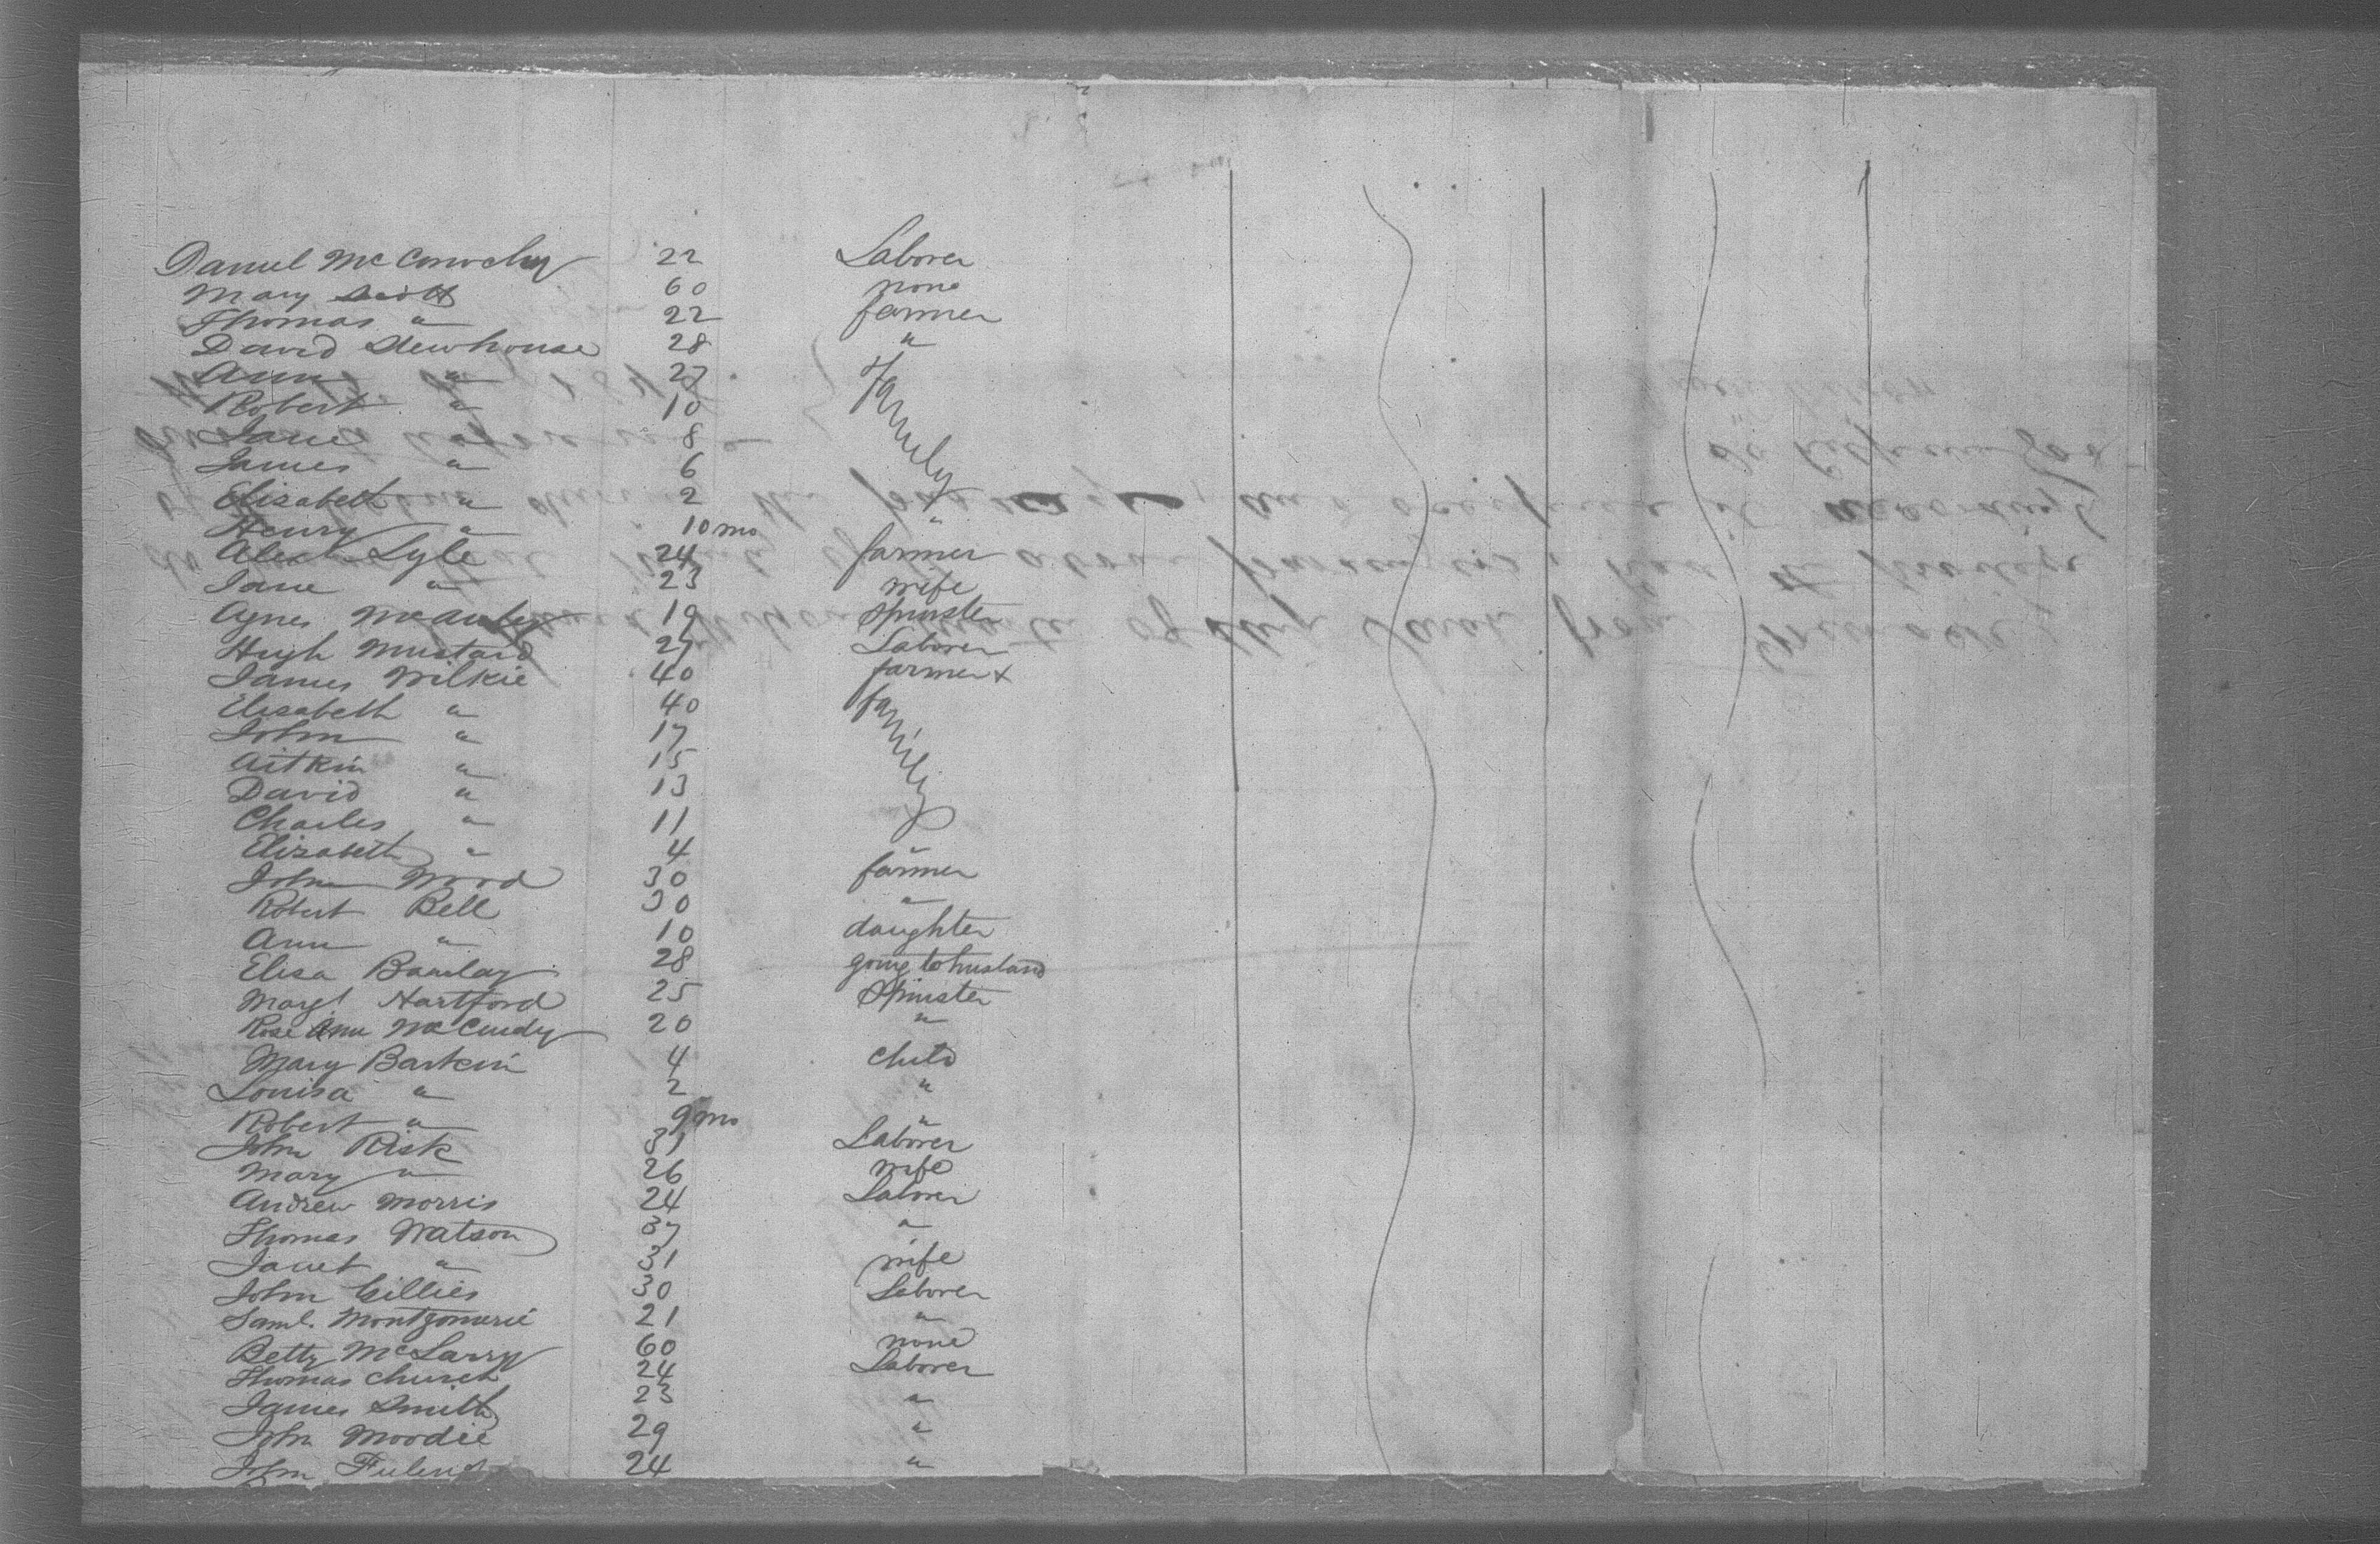 Daniel McConochy 22 Laborer
Mary Scott 60 none
Thomas " 22 farmer
David Newhouse 28 "
Ann " 27 family
Robert " 10
Jane " 8
James " 6
Elisabeth " 2
Henry " 10 mo "
Alexr Lyle 24 farmer
Jane " 23 wife
Agnes McAuley 19 Spinster
Hugh Mustard 27 Laborer
James Wilkie 40 farmer +
Elisabeth " 40 family
John " 17
Aitkin " 15
David " 13
Charles " 11
Elizabeth " 4 "
John Wood 30 farmer
Robert Bell 30 "
Ann " 10 daughter
Elisa Barclay 28 going to husband
Margt Hartford 25 Spinster
Rose Ann McCurdy 20 "
Mary Barkin 4 child
Louisa " 2 "
Robert " 9 mo "
John Risk 31 Laborer
Mary " 26 wife
Andrew Morris 24 Laborer
Thomas Watson 37 "
Janet " 31 wife
John Gillies 30 Laborer
Saml. Montgomerie 21 "
Betty McLarry 60 none
Thomas Church 24 Laborer
James Smith 23 "
John Moodie 29 "
John 24 "